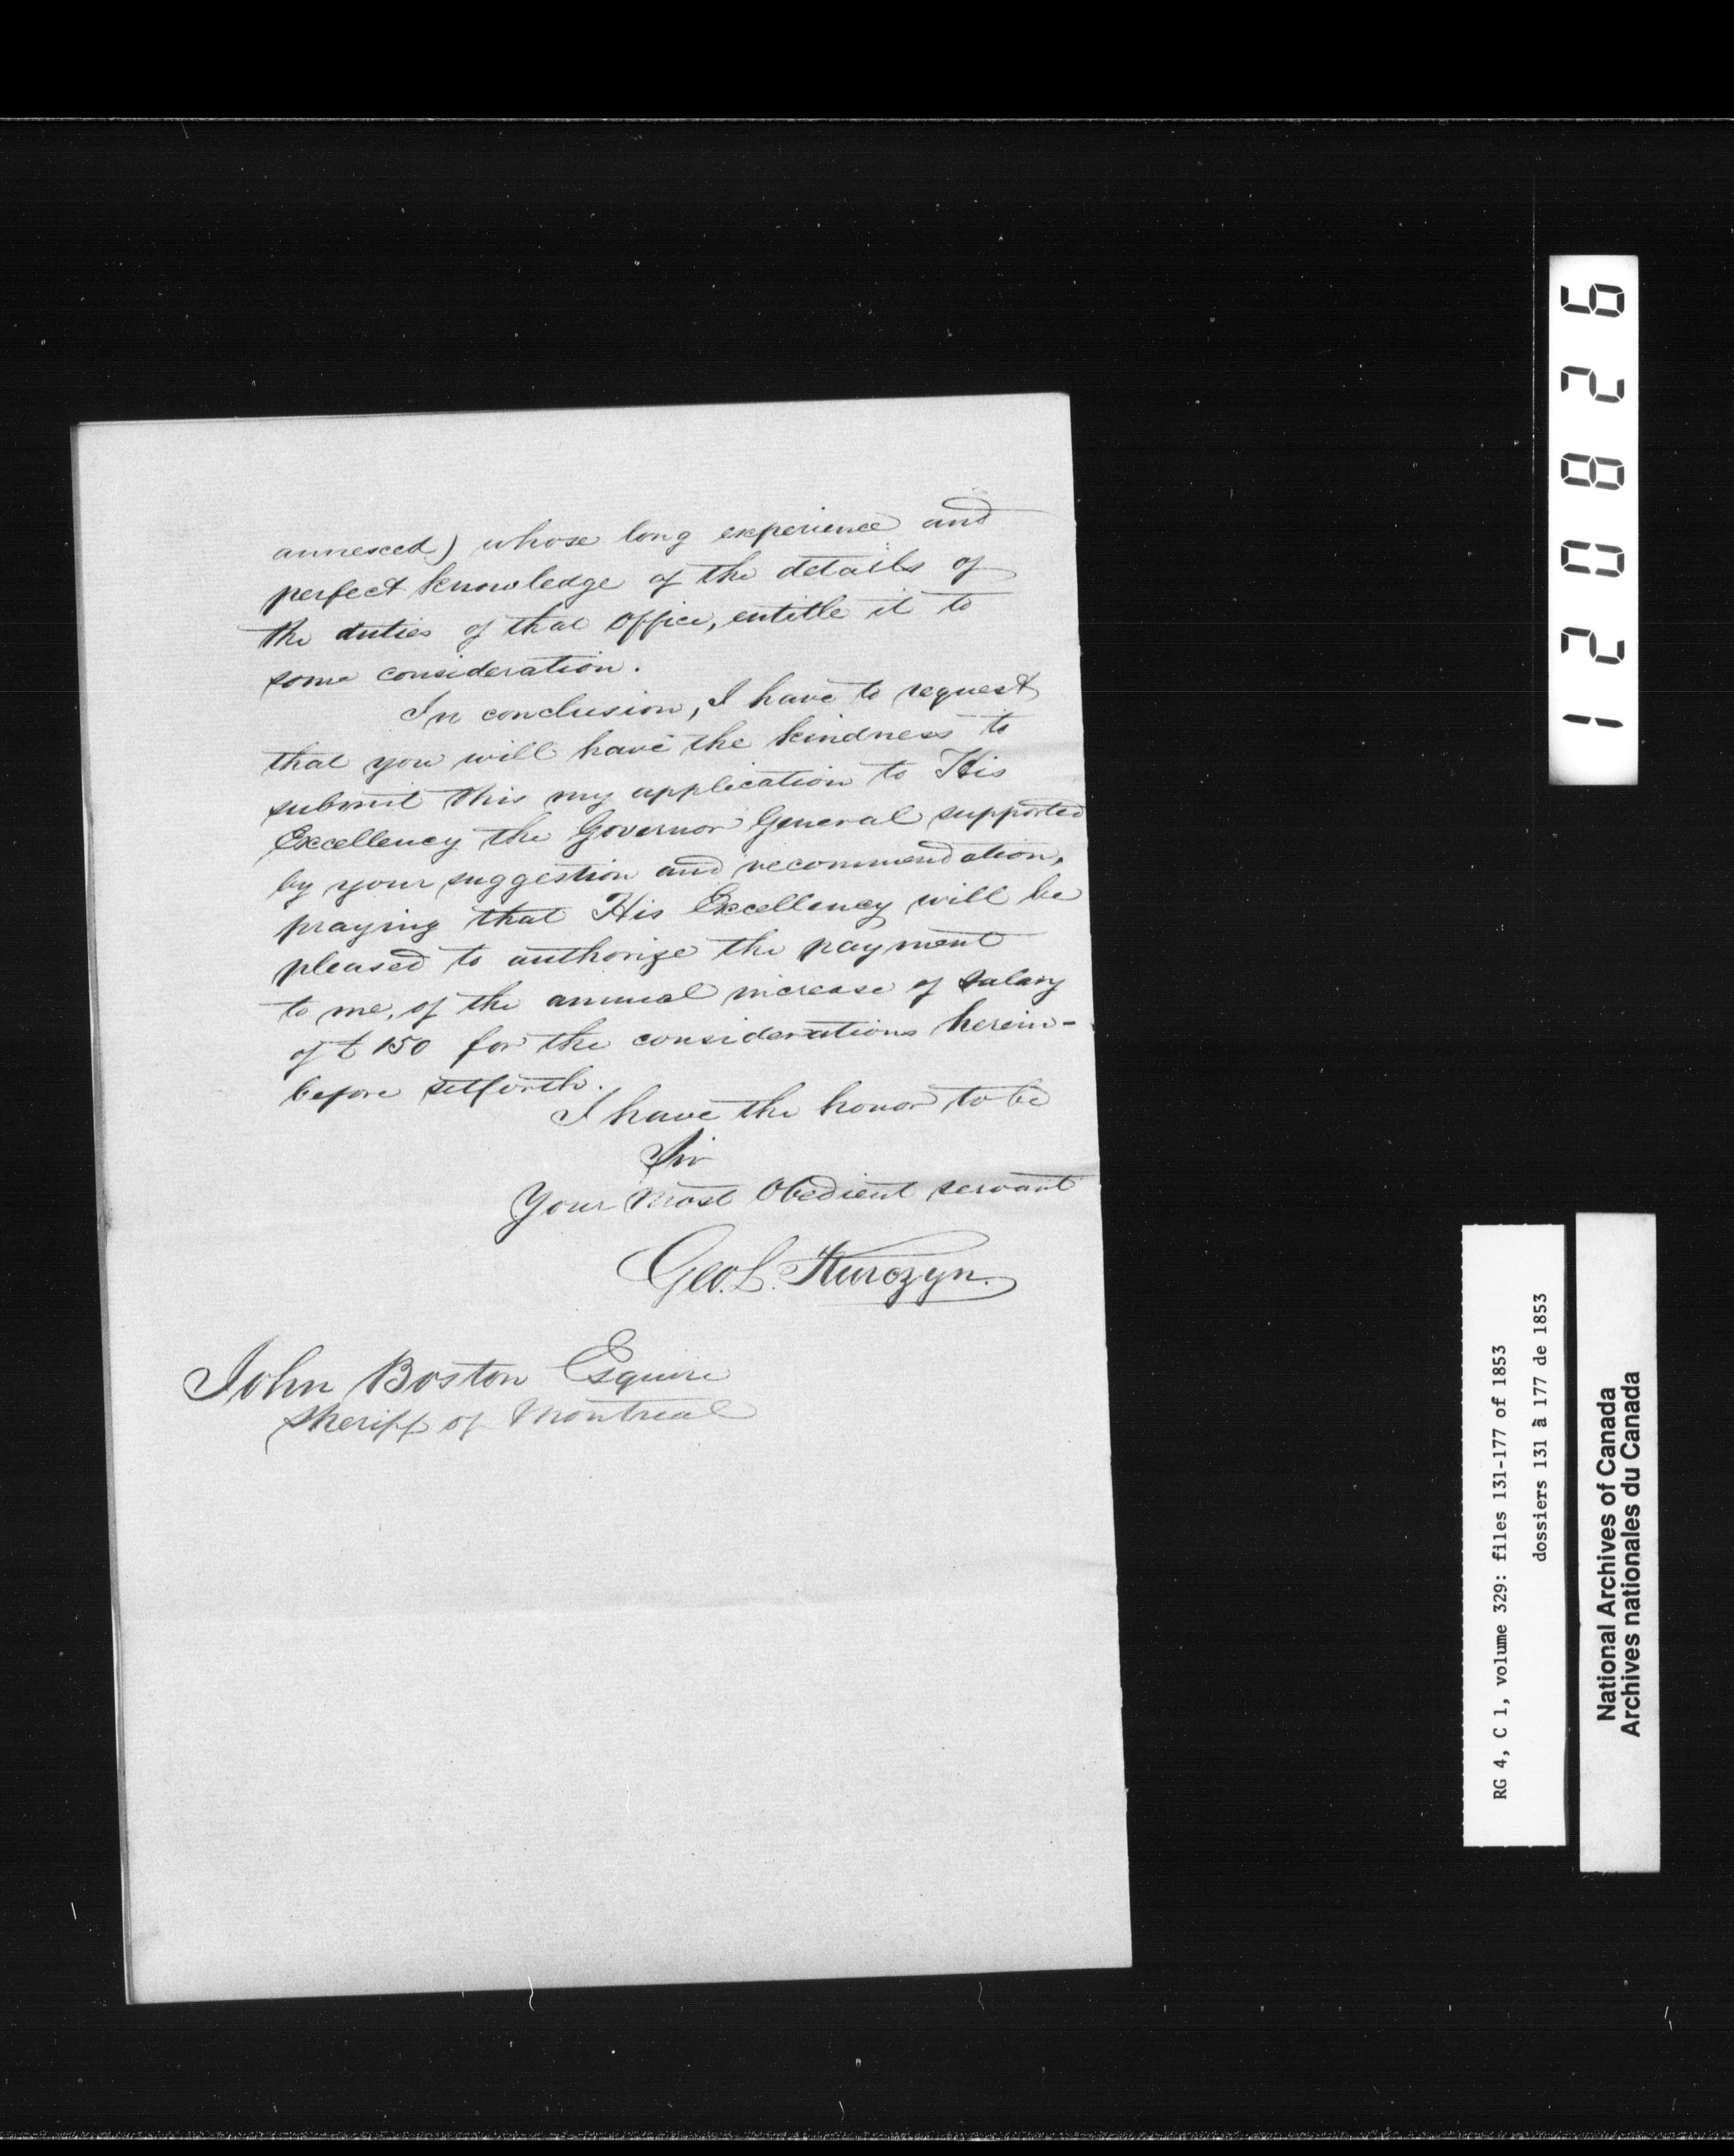 annexed) whose long experience and
perfect knowledge of the details of
the duties of that office, entitle it to
some consideration.
In conclusion, I have to request
that you will have the kindness to
submit this my application to His
Excellency the Governor General supported
by your suggestion and recommendation,
praying that His Excellency will be
pleased to authorize the payment
to me, of the annual increase of salary
of £150 for the considerations herein-
before setforth.
I have the honor to be
Sir
Your Most Obedient servant
Geo. L.
John Boston Esquire
Sheriff of Montreal
120826
RG 4, C 1, volume 329: files 131-177 of 1853
dossiers 131 à 177 de 1853
National Archives of Canada
Archives nationales du Canada